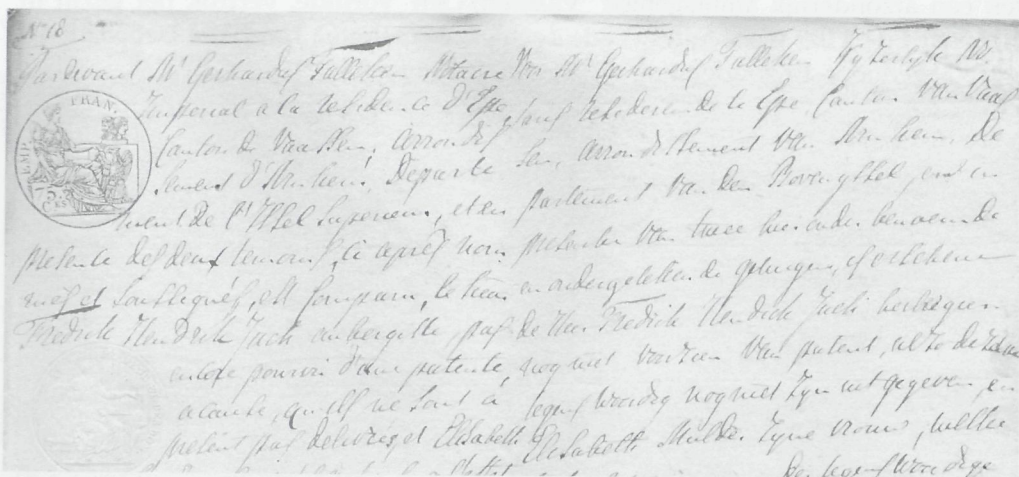 No. 18
Pardevant Mr. Gerhardus Tulleken Notaire
Imperial a la residence d'Epe,
Canton de Vaassen, arrondis
sement d'Arnhem, Departe
ment de l'Yssel Superieur, et en
presence des deux temoins, ci après nom
més et soussignés, est comparu, le sieur
Fredrik Hendrik Juch aubergiste, pas
encore pourvu d'une patente,
a cause, qu'ils ne sont à
present pas delivrés et Elisabeth
Voor Mr. Gerhardus Tulleken Kyzerlyk No
taris resideerende te Epe, Canton van Vaas
sen, arrondissement van Arnhem, De
partement van den Boven Yssel, en in
presentie van twee hier onder benoemde
en ondergetekende getuigen, is erschenen
de Heer Fredrik Hendrik Juch herbergier
nog niet voorzien van patent, uit zo de zelve
tegenswoordig nog niet zyn uitgegeven, en
Elisabeth Mulder zyne vrouw, welke
de tegenswoordige
EMP. FRAN.